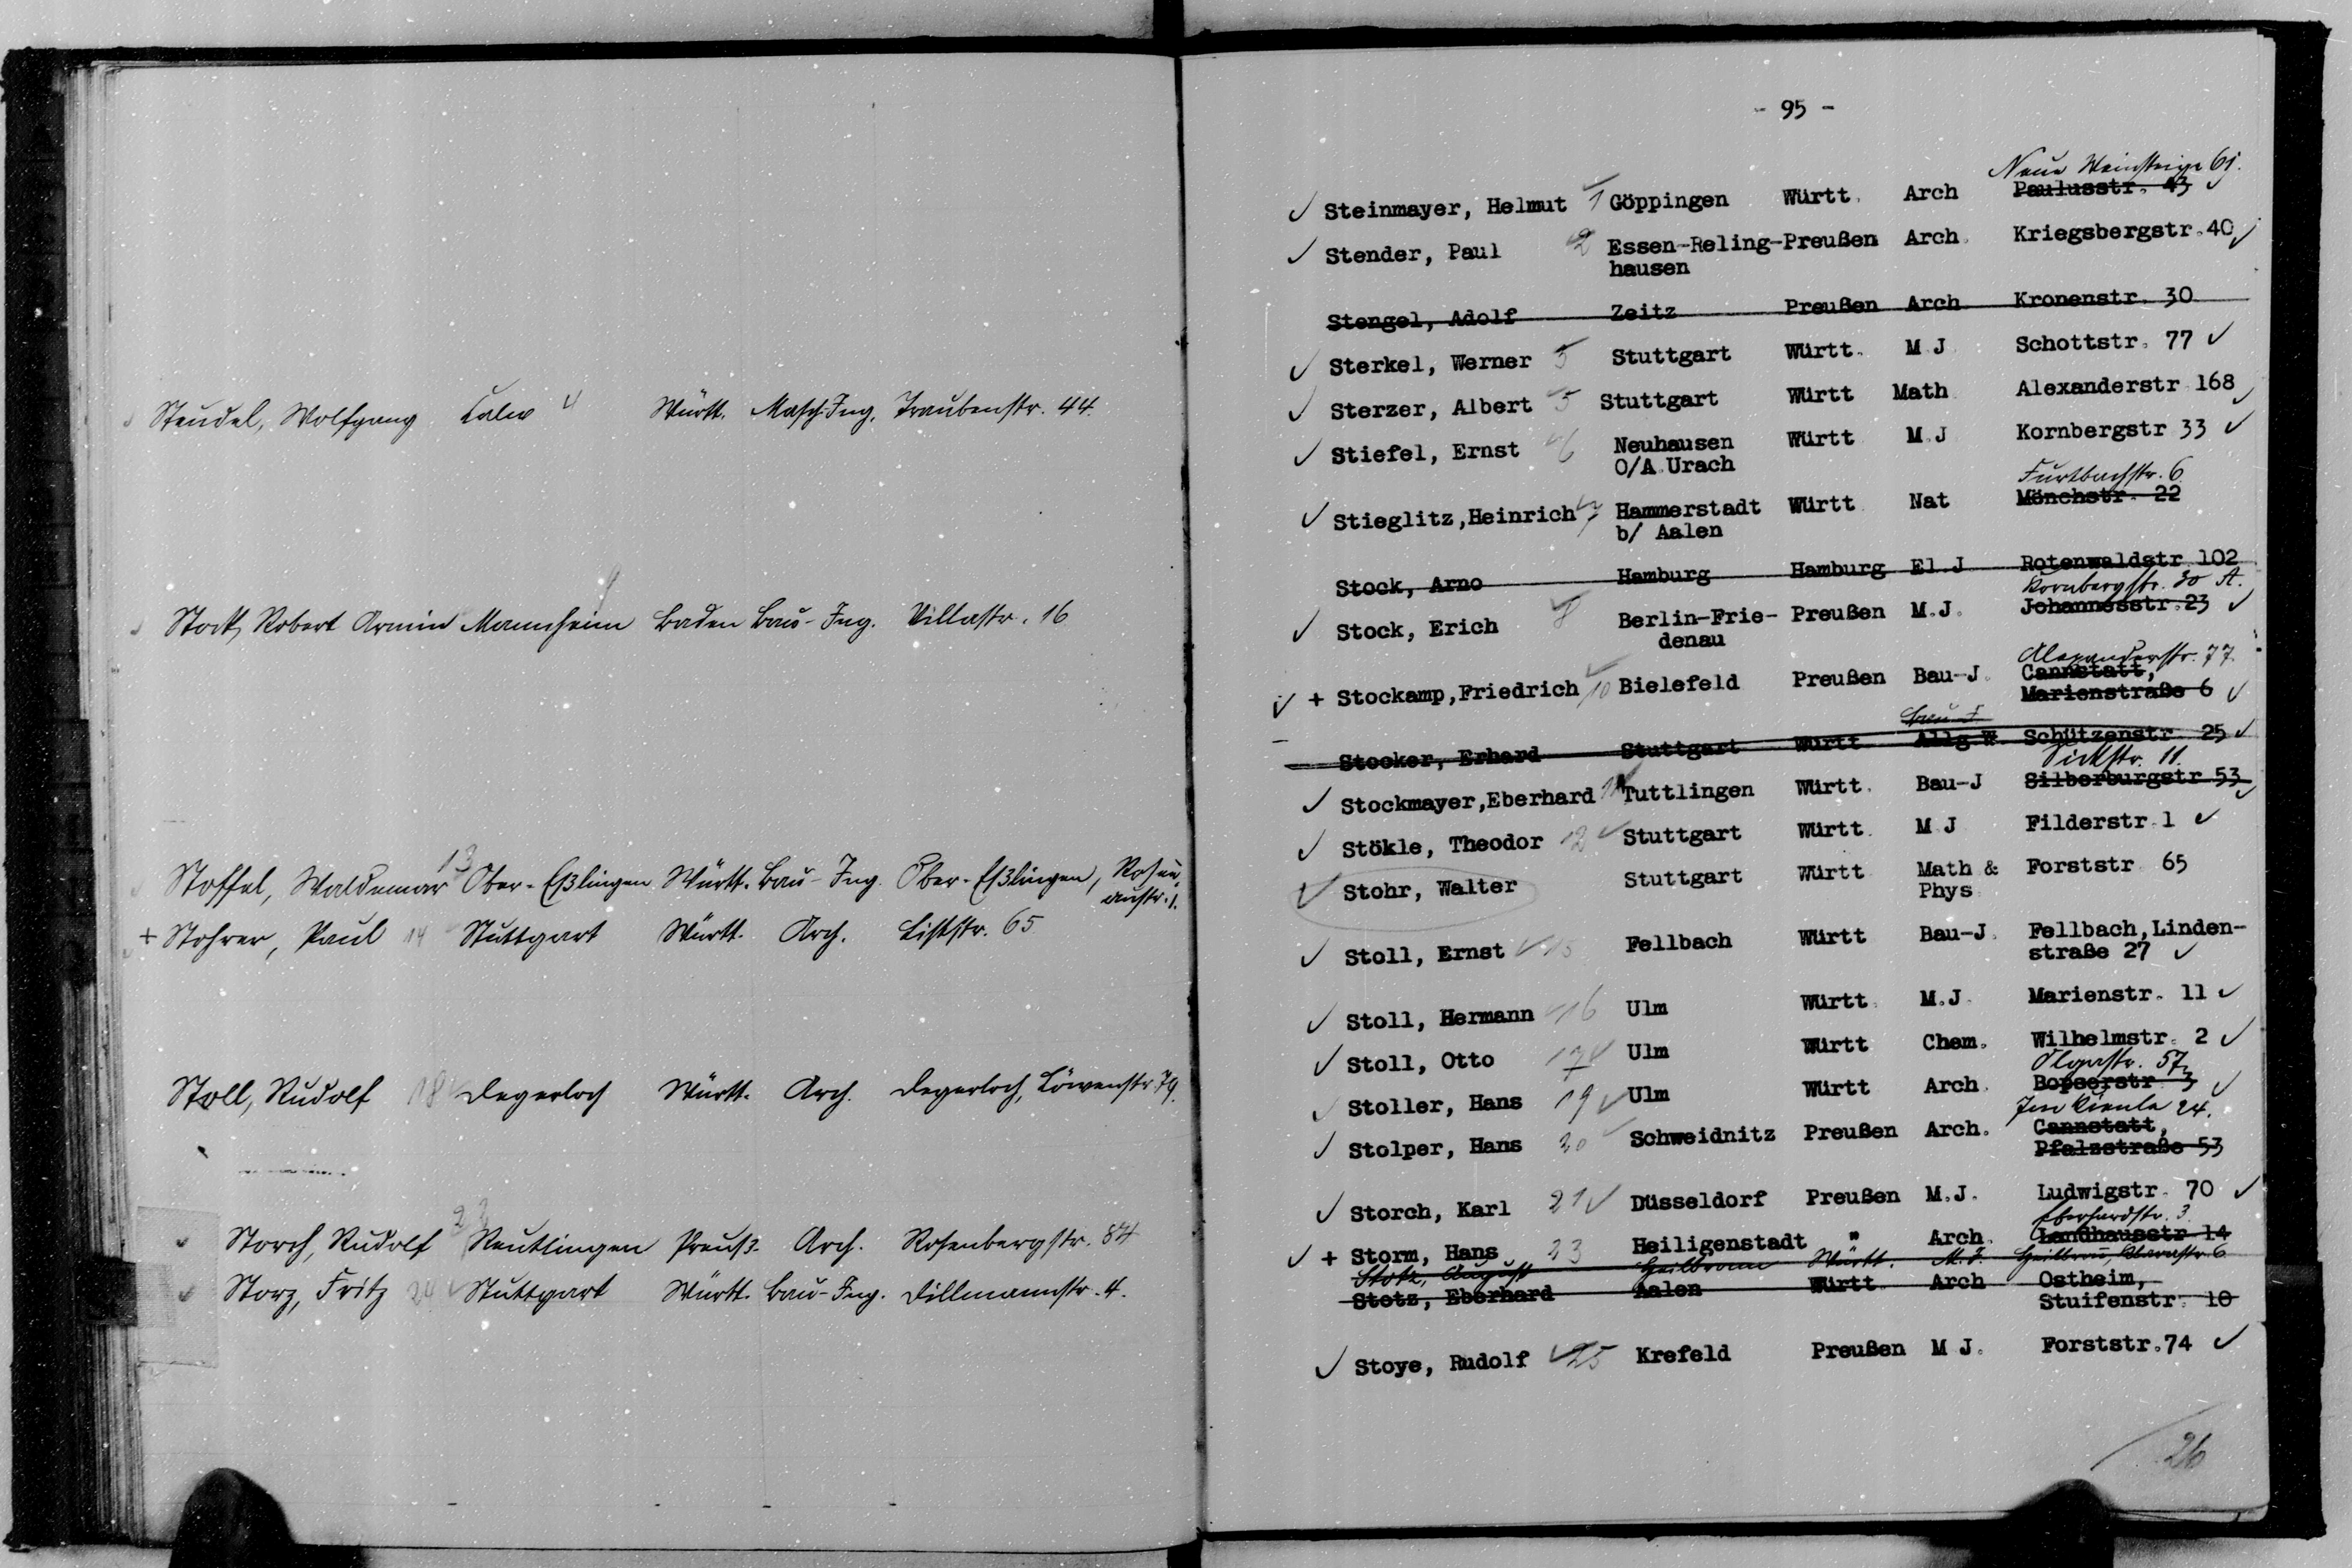 Steudel, Wolfgang Calw 4 Württ. Masch-Ing. Traubenstr. 44.
Stock, Robert Armin Mannheim 9 Baden Bau-Ing. Villastr. 16
Stoffel, Waldemar 13 Ober-Eßlingen Württ. Bau-Ing. Ober-Eßlingen, Rosen-
austr. 1.
+ Stohrer, Paul 14 Stuttgart Württ. Arch. Listr. 65
Stoll, Rudolf 18 Degerloch Württ. Arch. Degerloch, Löwenstr. 79.
Storch, Rudolf 22 Reutlingen Preuß. Arch. Rosenbergstr. 84
Storz, Fritz 24 Stuttgart Württ. Bau-Ing. Dillmannstr. 4.
- 95 -
Neue Weinsteige 61.
✓ Steinmayer, Helmut 1 Göppingen Württ. Arch Paulusstr. 43 ✓
✓ Stender, Paul 2 Essen-Reling- Preußen Arch. Kriegsbergstr. 40 ✓
hausen
Stengel, Adolf Zeitz Preußen Arch Kronenstr. 30
✓ Sterkel, Werner 3 Stuttgart Württ. M J Schottstr. 77 ✓
✓ Sterzer, Albert 5 Stuttgart Württ Math Alexanderstr 168 ✓
✓ Stiefel, Ernst 6 Neuhausen Württ M.J Kornbergstr 33 ✓
O/A.Urach
Furtbachstr. 6
✓ Stieglitz,Heinrich 7 Hammerstadt Württ Nat Mönchstr. 22
b/ Aalen
Stock, Arno Hamburg Hamburg El.J Rotenwaldstr 102
Kornbergstr. 30 A.
✓ Stock, Erich 8 Berlin-Frie- Preußen M.J. Johannesstr. 23 ✓
denau
Alexanderstr. 77.
✓ + Stockamp,Friedrich 10 Bielefeld Preußen Bau-J. Cannstatt,
Marienstraße 6 ✓
Bau-I
Stocker, Erhard Stuttgart Württ Allg.W. Schützenstr 25 ✓
Sickstr. 11.
✓ Stockmayer,Eberhard 11 Tuttlingen Württ. Bau-J Silberburgstr 53 ✓
✓ Stökle, Theodor 12 ✓ Stuttgart Württ. M J Filderstr. 1 ✓
✓ Stohr, Walter Stuttgart Württ Math & Forststr 65
Phys
✓ Stoll, Ernst ✓ 15 Fellbach Württ Bau-J. Fellbach,Linden-
straße 27 ✓
✓ Stoll, Hermann 16 Ulm Württ. M.J. Marienstr. 11 ✓
✓ Stoll, Otto 17 Ulm Württ Chem. Wilhelmstr. 2 ✓
Olgastr. 57
✓ Stoller, Hans 19 ✓ Ulm Württ Arch. Bopserstr 3 ✓
Im Kienle 24.
✓ Stolper, Hans 20 Schweidnitz Preußen Arch. Cannstatt,
Pfalzstraße 53
✓ Storch, Karl 21 ✓ Düsseldorf Preußen M.J. Ludwigstr. 70 ✓
Eberhardstr. 3.
✓ + Storm, Hans 23 Heiligenstadt " Arch. Landhausstr 14
Stotz, August Heilbronn Württ. M. I. Heilbronn, 6
Stotz, Eberhard Aalen Württ Arch Ostheim,
Stuifenstr. 10
✓ Stoye, Rudolf ✓ 25 Krefeld Preußen M J. Forststr.74 ✓
26